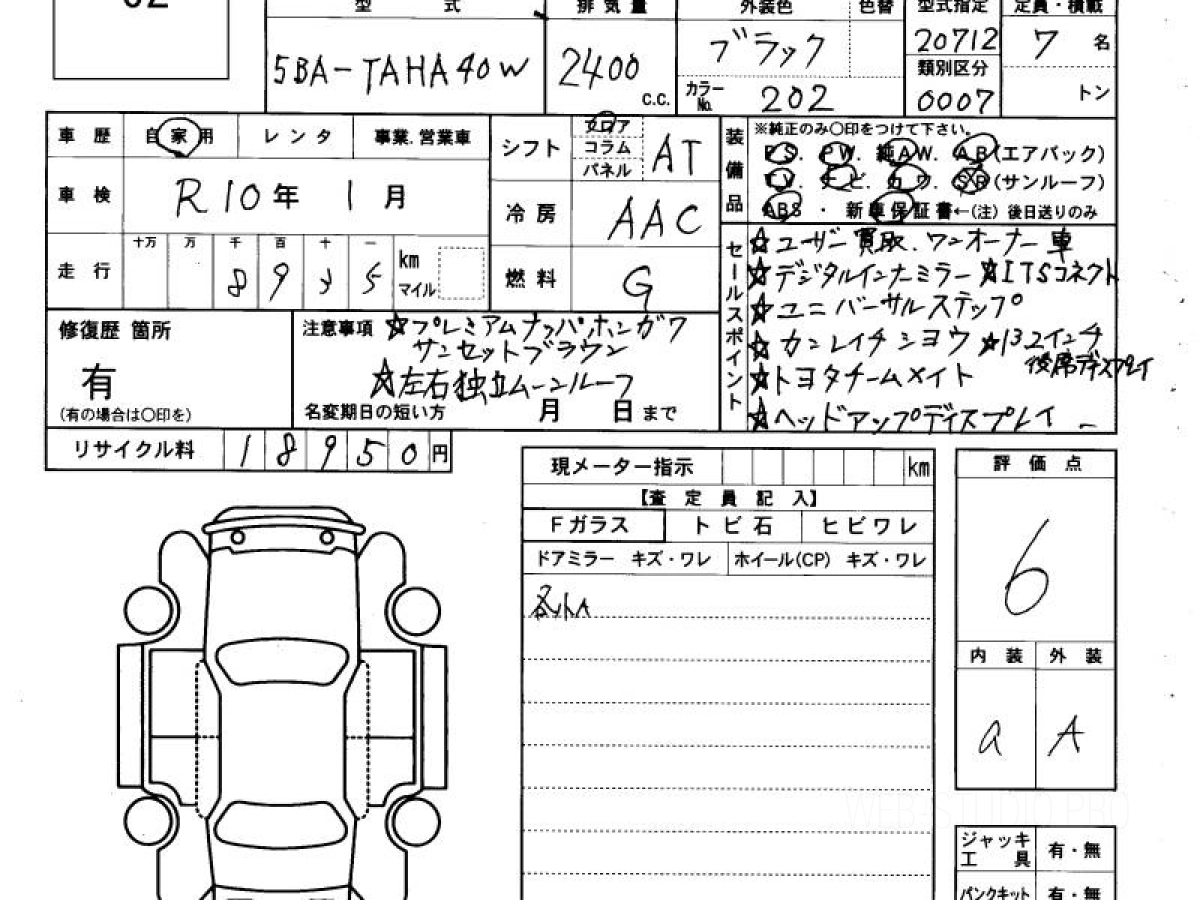 型 式 排 気 量 外装色 色替 型式指定 定員・積載
5BA-TAHA40W 2400 C.C. ブラック 20712 7 名
類別区分
カラーNo. 202 0007 トン
車 歴 自 家 用 レ ン タ 事業.営業車
シフト フロア コラム パネル AT
車 検 R10年 1月
冷 房 AAC
走 行 十万 万 千 百 十 一 km マイル
8 9 3 5
燃 料 G
装備品 ※純正のみ〇印をつけて下さい。
P S. P W. 純 A W. A B (エアバック)
T V. ナ ビ. カ ワ. S R (サンルーフ)
ABS ・ 新 車 保 証 書←(注) 後日送りのみ
セールスポイント
☆ユーザー買取.ワンオーナー車
☆デジタルインナーミラー ☆ITSコネクト
☆ユニバーサルステップ
☆カンレイチシヨウ ☆13.2インチ
後席ディスプレイ
☆トヨタチームメイト
☆ヘッドアップディスプレイ
修復歴 箇所
有
(有の場合は〇印を)
注意事項 ☆プレミアムナッパ,ホンガワ
サンセットブラウン
☆左右独立ムーンルーフ
名変期日の短い方 月 日 まで
リサイクル料 1 8 9 5 0 円
現メーター指示 km
【査 定 員 記 入】
Fガラス ト ビ 石 ヒ ビ ワ レ
ドアミラー キズ・ワレ ホイール(CP) キズ・ワレ
評 価 点
6
内 装 外 装
a A
ジャッキ 工 具 有・無
パンクキット 有・無
WEB-STUDIO PRO